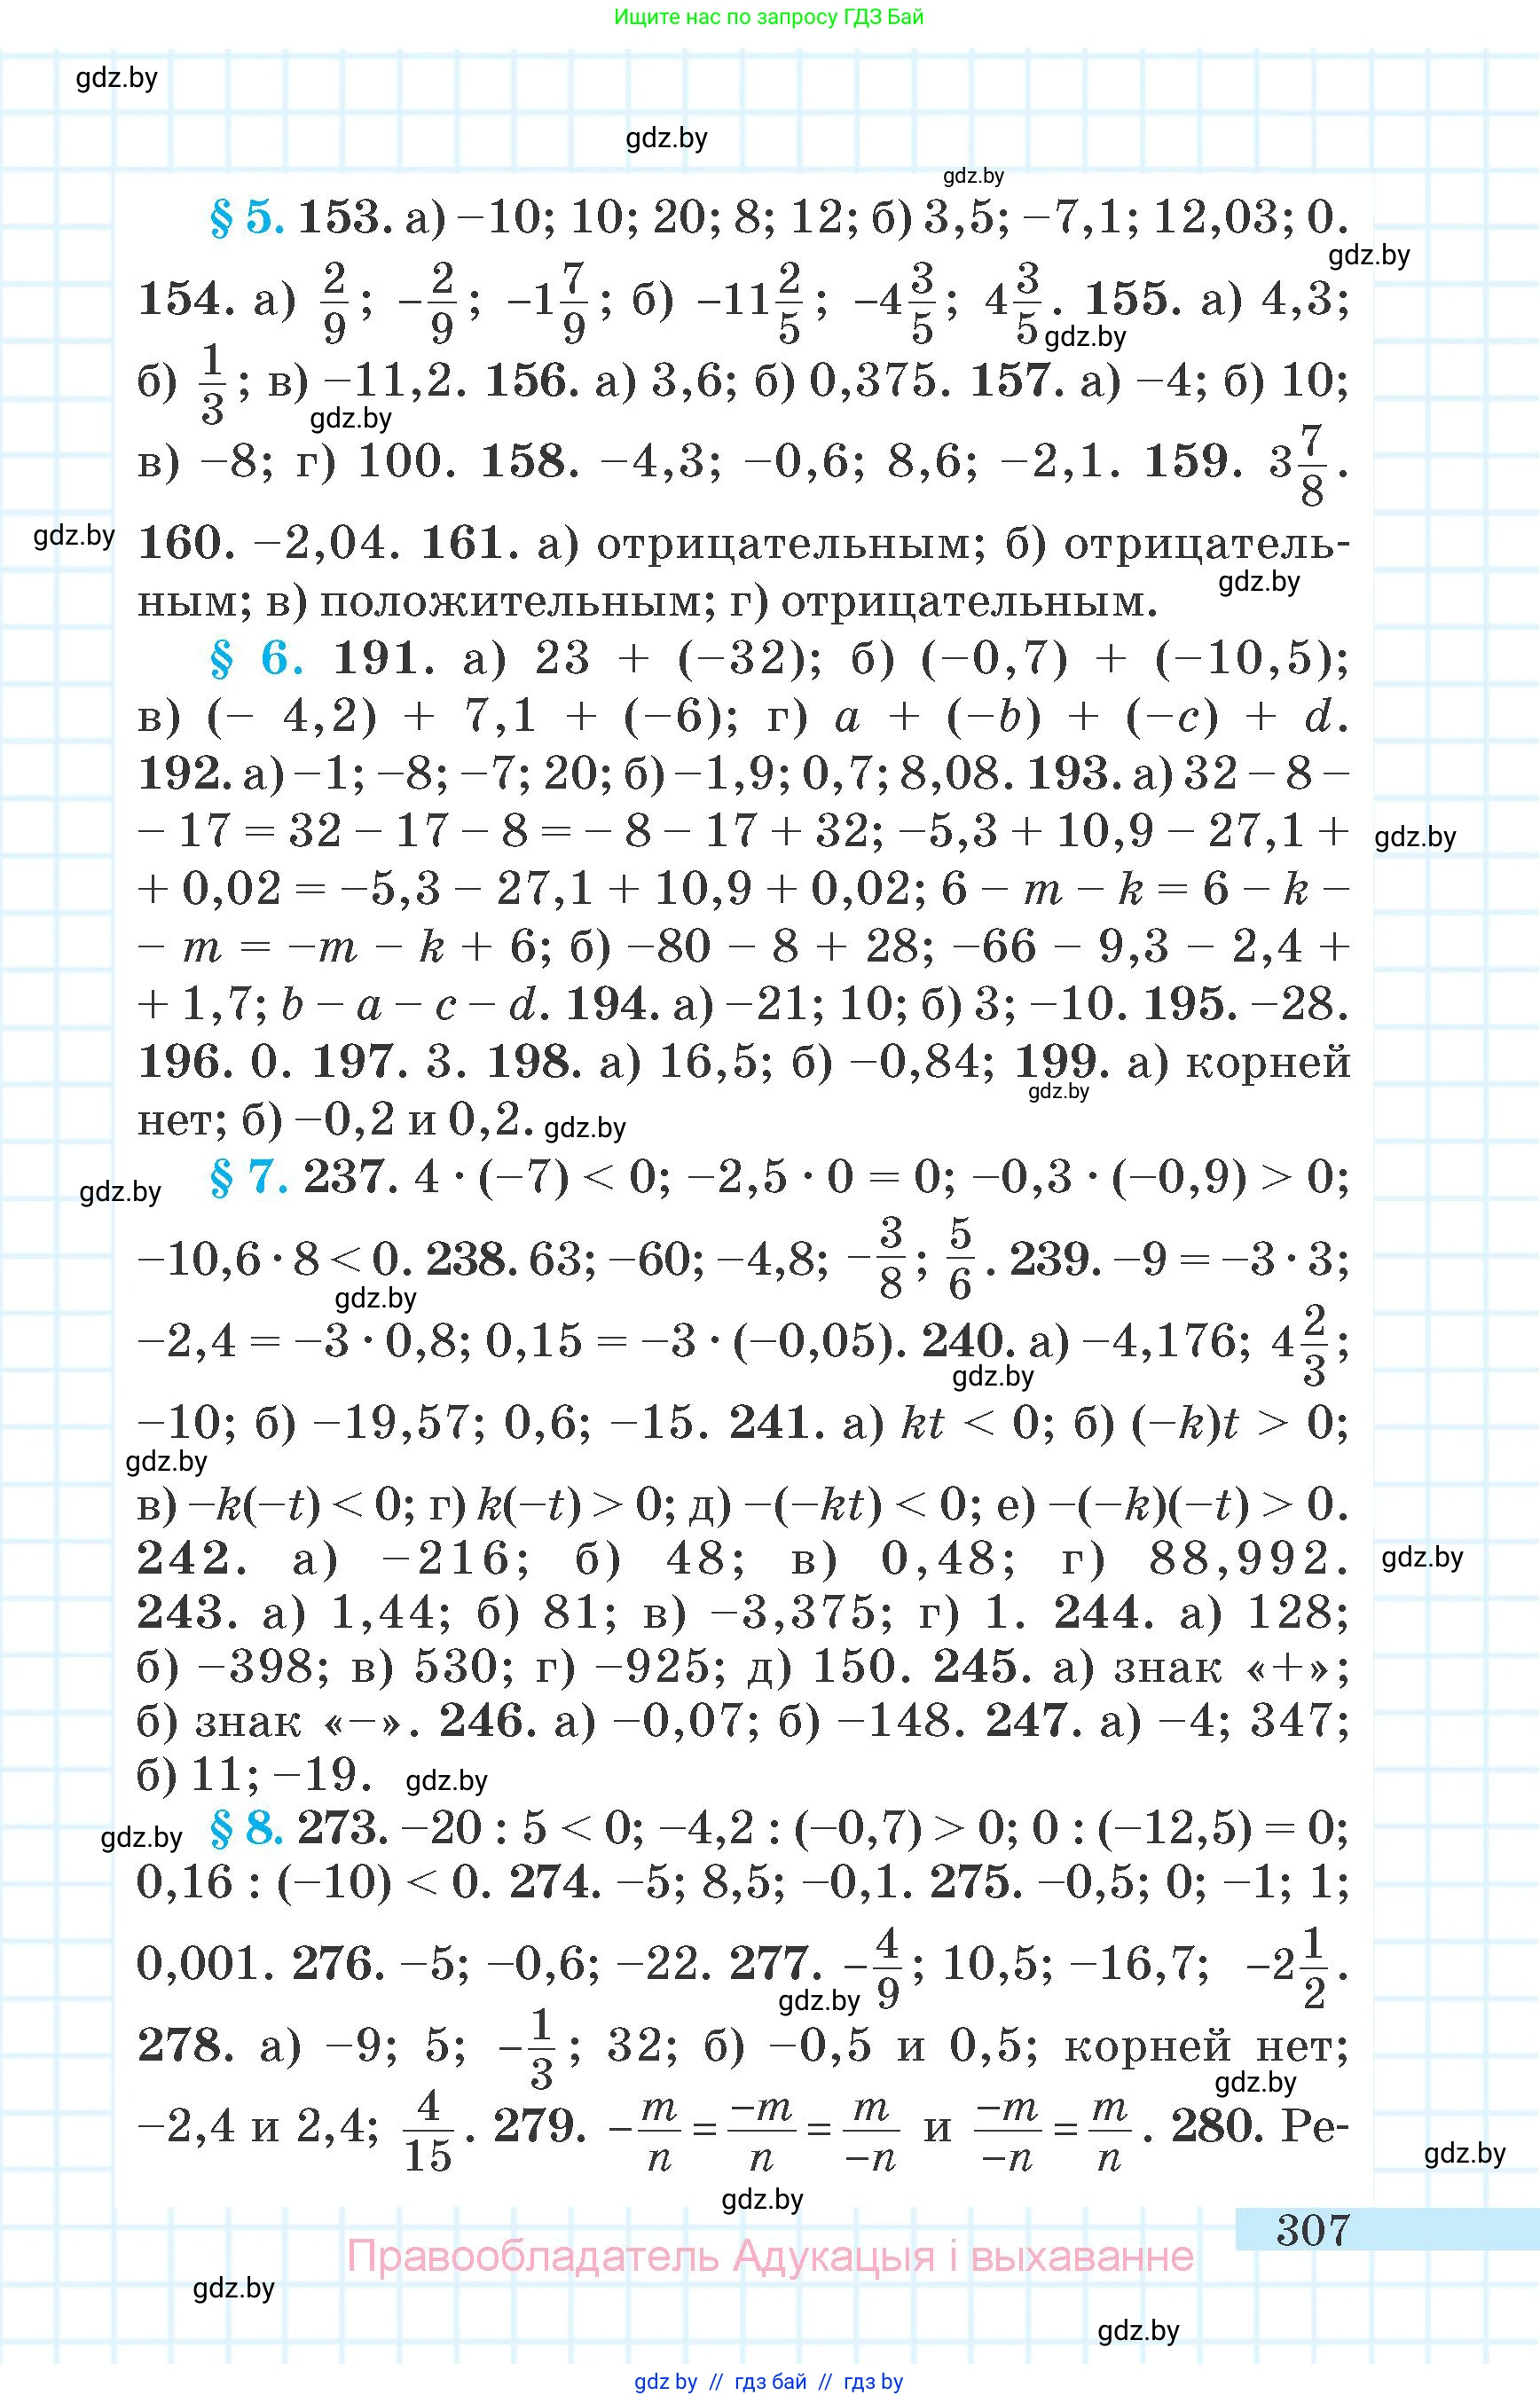 Ищите нас по запросу ГДЗ Бай
gdz.by
gdz.by
gdz.by
§ 5. 153. а) –10; 10; 20; 8; 12; б) 3,5; –7,1; 12,03; 0.
gdz.by
154. а) 2/9; –2/9; –1 7/9; б) –11 2/5; –4 3/5; 4 3/5. 155. а) 4,3;
gdz.by
б) 1/3; в) –11,2. 156. а) 3,6; б) 0,375. 157. а) –4; б) 10;
gdz.by
в) –8; г) 100. 158. –4,3; –0,6; 8,6; –2,1. 159. 3 7/8.
gdz.by
160. –2,04. 161. а) отрицательным; б) отрицатель-
gdz.by
ным; в) положительным; г) отрицательным.
§ 6. 191. а) 23 + (–32); б) (–0,7) + (–10,5);
в) (– 4,2) + 7,1 + (–6); г) a + (–b) + (–c) + d.
192. а) –1; –8; –7; 20; б) –1,9; 0,7; 8,08. 193. а) 32 – 8 –
– 17 = 32 – 17 – 8 = – 8 – 17 + 32; –5,3 + 10,9 – 27,1 +
gdz.by
+ 0,02 = –5,3 – 27,1 + 10,9 + 0,02; 6 – m – k = 6 – k –
– m = –m – k + 6; б) –80 – 8 + 28; –66 – 9,3 – 2,4 +
+ 1,7; b – a – c – d. 194. а) –21; 10; б) 3; –10. 195. –28.
196. 0. 197. 3. 198. а) 16,5; б) –0,84; 199. а) корней
gdz.by
нет; б) –0,2 и 0,2.
gdz.by
§ 7. 237. 4 · (–7) < 0; –2,5 · 0 = 0; –0,3 · (–0,9) > 0;
gdz.by
–10,6 · 8 < 0. 238. 63; –60; –4,8; –3/8; 5/6. 239. –9 = –3 · 3;
gdz.by
–2,4 = –3 · 0,8; 0,15 = –3 · (–0,05). 240. а) –4,176; 4 2/3;
gdz.by
–10; б) –19,57; 0,6; –15. 241. а) kt < 0; б) (–k)t > 0;
gdz.by
в) –k(–t) < 0; г) k(–t) > 0; д) –(–kt) < 0; е) –(–k)(–t) > 0.
242. а) –216; б) 48; в) 0,48; г) 88,992.
gdz.by
243. а) 1,44; б) 81; в) –3,375; г) 1. 244. а) 128;
б) –398; в) 530; г) –925; д) 150. 245. а) знак «+»;
б) знак «–». 246. а) –0,07; б) –148. 247. а) –4; 347;
б) 11; –19.
gdz.by
§ 8. 273. –20 : 5 < 0; –4,2 : (–0,7) > 0; 0 : (–12,5) = 0;
gdz.by
0,16 : (–10) < 0. 274. –5; 8,5; –0,1. 275. –0,5; 0; –1; 1;
0,001. 276. –5; –0,6; –22. 277. –4/9; 10,5; –16,7; –2 1/2.
gdz.by
278. а) –9; 5; –1/3; 32; б) –0,5 и 0,5; корней нет;
gdz.by
–2,4 и 2,4; 4/15. 279. –m/n = –m/n = m/–n и –m/–n = m/n. 280. Ре-
gdz.by
gdz.by
307
Правообладатель Адукацыя і выхаванне
gdz.by
gdz.by
gdz by // гдз бай // гдз by